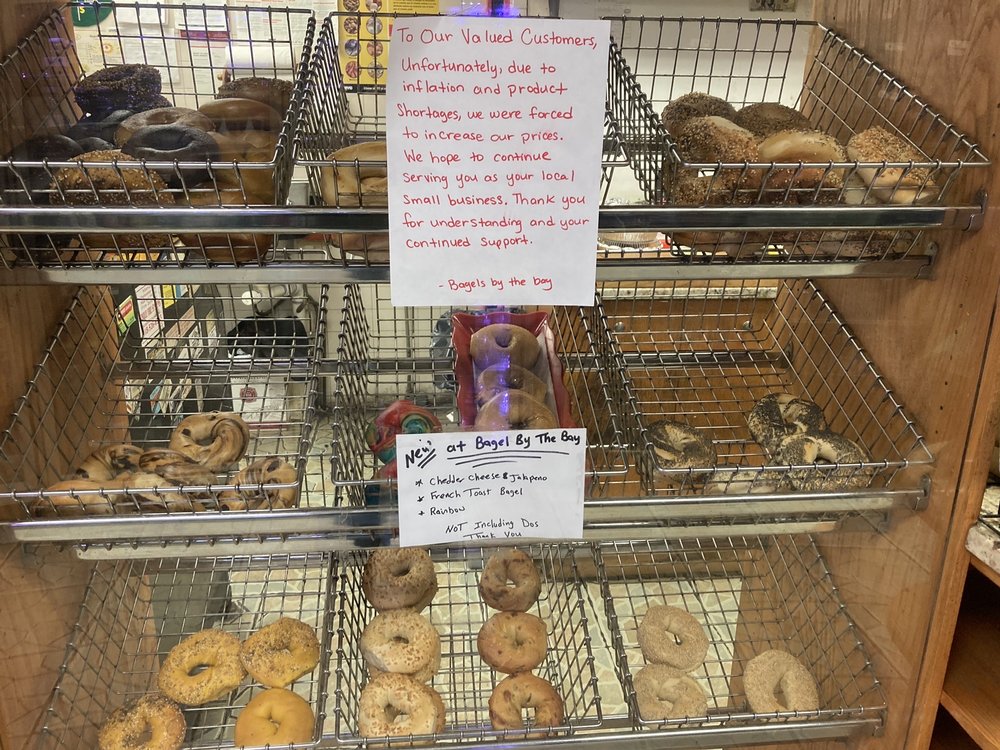 To Our Valued Customers,
Unfortunately, due to
inflation and product
Shortages, we were forced
to increase our prices.
We hope to continue
serving you as your local
small business. Thank you
for understanding and your
continued support.
- Bagels by the bay
New at Bagel By The Bay
* Chedder Cheese & Jalapeno
* French Toast Bagel
* Rainbow
NOT Including Dos
Thank You